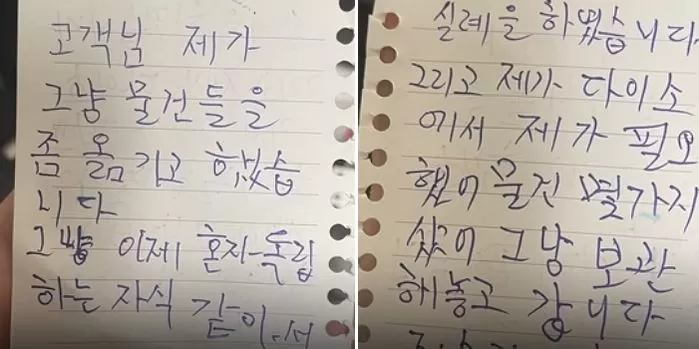 고객님 제가
그냥 물건들을
좀 옮기고 했습
니다
그냥 이제 혼자 독립
하는 자식 같이.서
실례을 하였습니다.
그리고 제가 다이소
에서 제가 필요
했어 물건 몇가지
샀어 그냥 보관
해놓고 갑니다